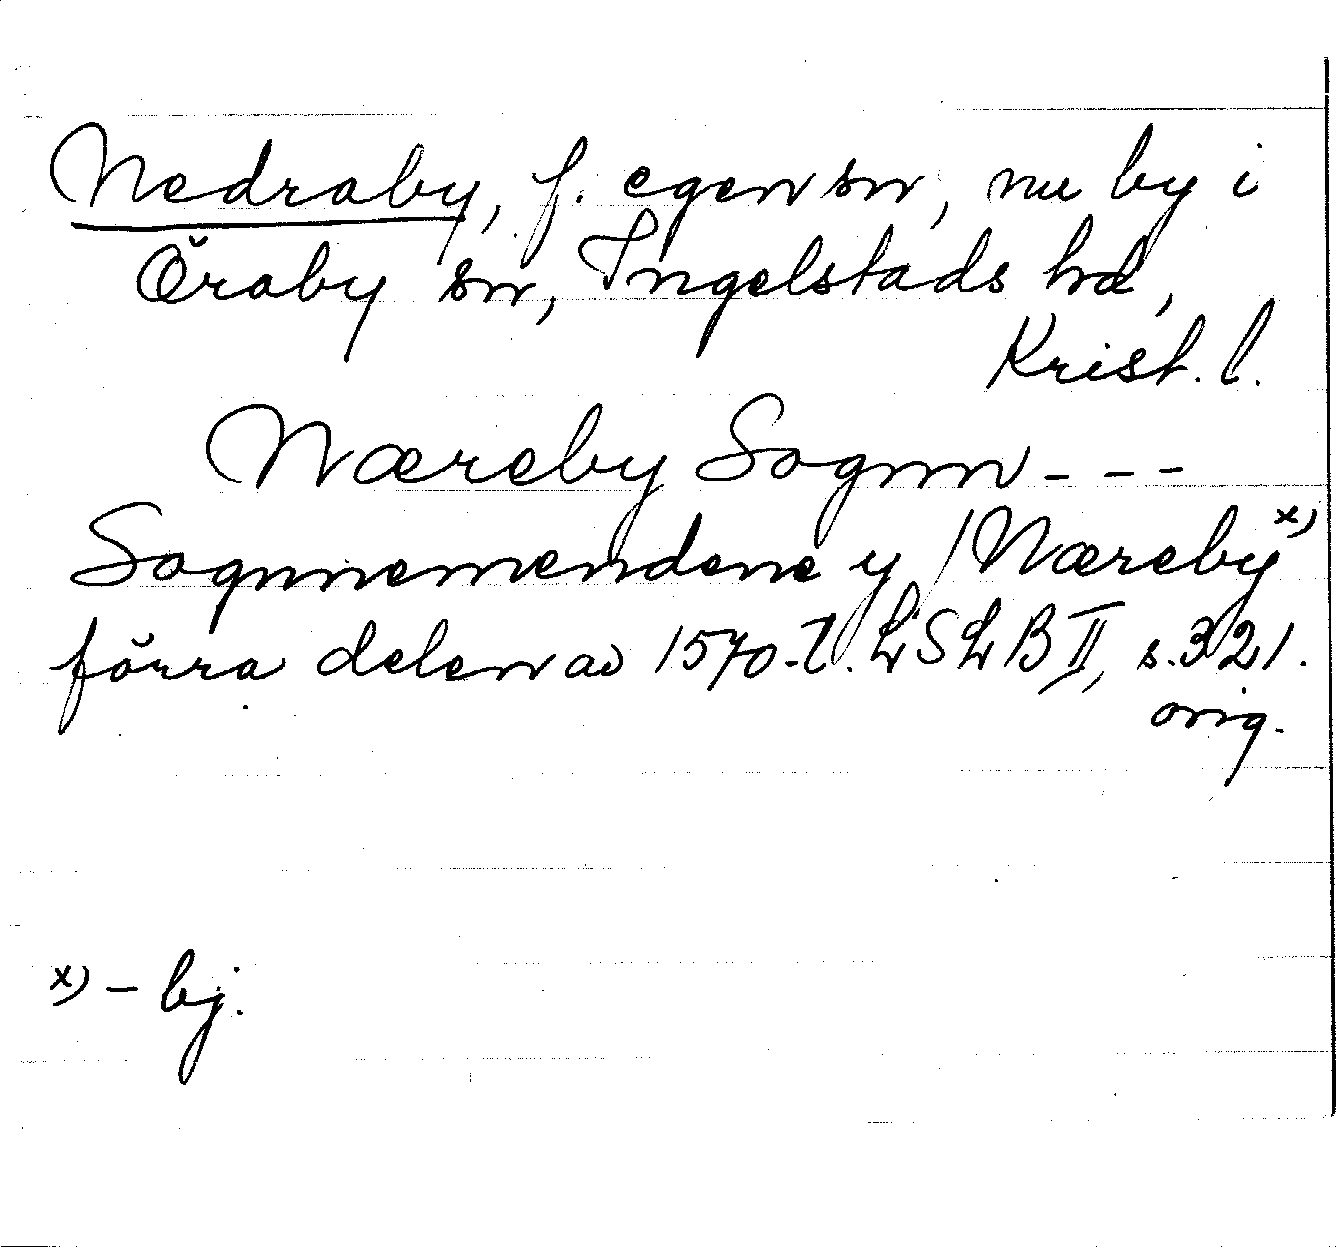 Nedraby, f. egen sn, nu by i
Öraby sn, Ingelstads hd,
Krist. l.
Næreby Sognn - - -
Sognnemendene y / Næreby x)
förra delen av 1570-t. LSLB II, s. 321.
orig.
x) - bÿ.